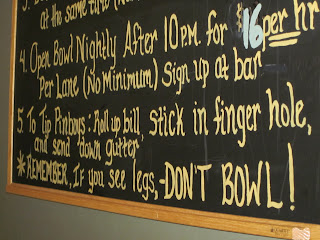 at the same time (No
4. Open Bowl Nightly After 10PM. for $16 per hr
Per Lane (No Minimum) Sign up at bar
5. To Tip Pinboys: Roll up bill, stick in finger hole,
and send down gutter
*REMEMBER, If you see legs,-DON'T BOWL!